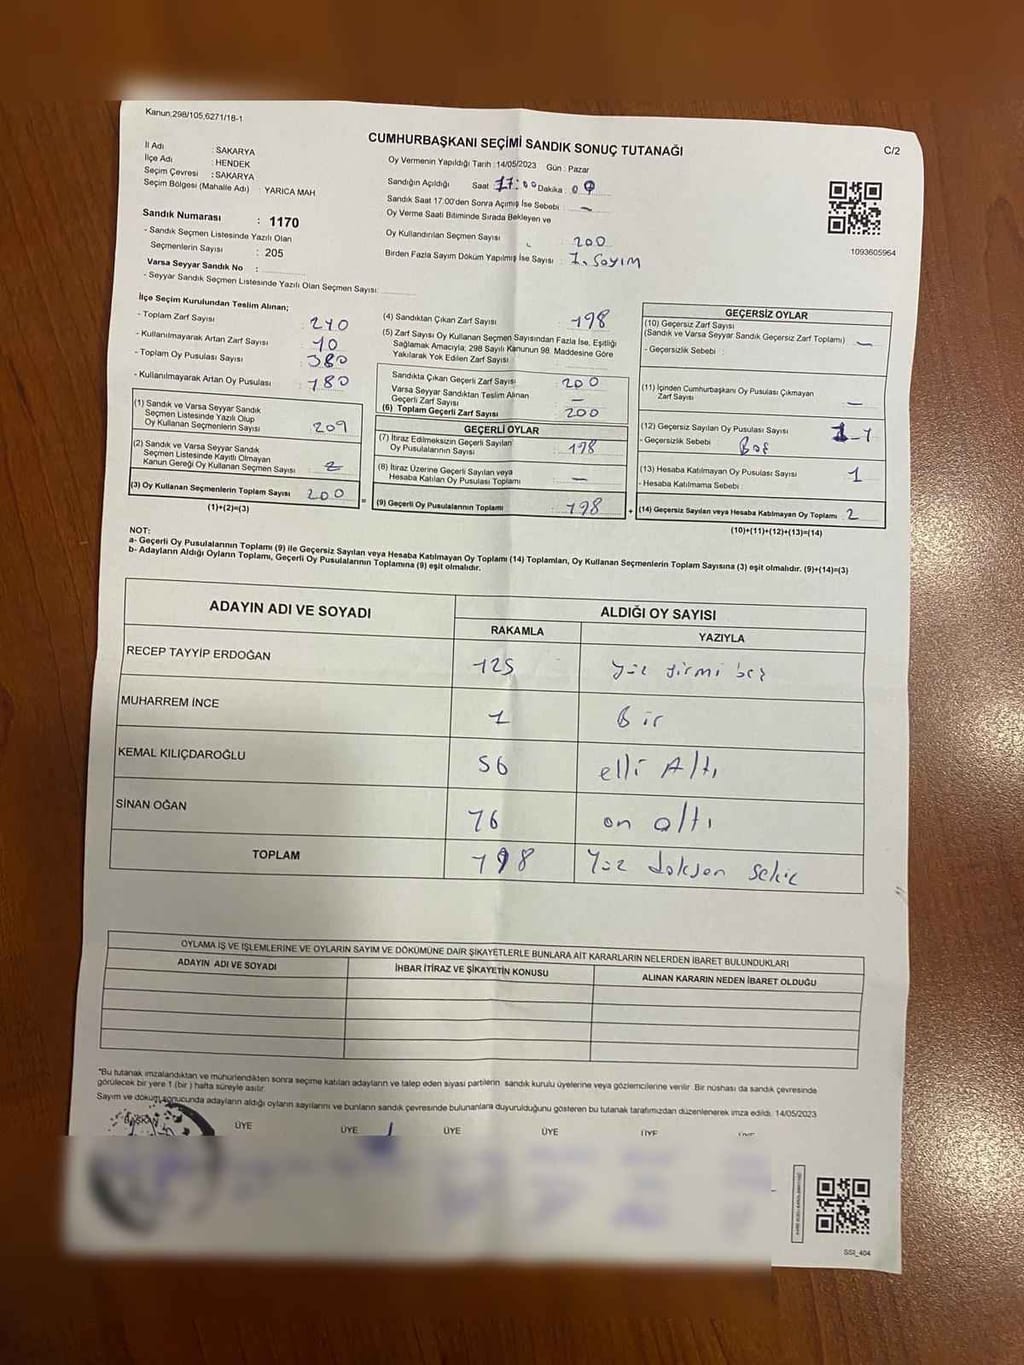 Kanun;298/105,6271/18-1
CUMHURBAŞKANI SEÇİMİ SANDIK SONUÇ TUTANAĞI
C/2
İl Adı : SAKARYA
İlçe Adı : HENDEK
Seçim Çevresi : SAKARYA
Seçim Bölgesi (Mahalle Adı) : YARICA MAH
Sandık Numarası : 1170
- Sandık Seçmen Listesinde Yazılı Olan
Seçmenlerin Sayısı : 205
Varsa Seyyar Sandık No :
- Seyyar Sandık Seçmen Listesinde Yazılı Olan Seçmen Sayısı:
Oy Vermenin Yapıldığı Tarih : 14/05/2023 Gün : Pazar
Sandığın Açıldığı Saat 17:00 Dakika :
Sandık Saat 17.00'den Sonra Açımış İse Sebebi : —
Oy Verme Saati Bitiminde Sırada Bekleyen ve
Oy Kullandırılan Seçmen Sayısı : 200
Birden Fazla Sayım Döküm Yapılmış İse Sayısı : 1. Sayım
1093605964
İlçe Seçim Kurulundan Teslim Alınan;
- Toplam Zarf Sayısı 210
- Kullanılmayarak Artan Zarf Sayısı 10
- Toplam Oy Pusulası Sayısı 380
- Kullanılmayarak Artan Oy Pusulası 180
(1) Sandık ve Varsa Seyyar Sandık
Seçmen Listesinde Yazılı Olup
Oy Kullanan Seçmenlerin Sayısı
(2) Sandık ve Varsa Seyyar Sandık
Seçmen Listesinde Kayıtlı Olmayan
Kanun Gereği Oy Kullanan Seçmen Sayısı
(3) Oy Kullanan Seçmenlerin Toplam Sayısı 200
(1)+(2)=(3)
(4) Sandıktan Çıkan Zarf Sayısı 198
(5) Zarf Sayısı Oy Kullanan Seçmen Sayısından Fazla İse, Eşitliği
Sağlamak Amacıyla; 298 Sayılı Kanunun 98. Maddesine Göre
Yakılarak Yok Edilen Zarf Sayısı
Sandıkta Çıkan Geçerli Zarf Sayısı 200
Varsa Seyyar Sandıktan Teslim Alınan
Geçerli Zarf Sayısı —
(6) Toplam Geçerli Zarf Sayısı 200
GEÇERLİ OYLAR
(7) İtiraz Edilmeksizin Geçerli Sayılan
Oy Pusulalarının Sayısı 198
(8) İtiraz Üzerine Geçerli Sayılan veya
Hesaba Katılan Oy Pusulası Toplamı —
(9) Geçerli Oy Pusulalarının Toplamı 198
GEÇERSİZ OYLAR
(10) Geçersiz Zarf Sayısı
(Sandık ve Varsa Seyyar Sandık Geçersiz Zarf Toplamı) —
- Geçersizlik Sebebi :
(11) İçinden Cumhurbaşkanı Oy Pusulası Çıkmayan
Zarf Sayısı —
(12) Geçersiz Sayılan Oy Pusulası Sayısı
- Geçersizlik Sebebi Boş
(13) Hesaba Katılmayan Oy Pusulası Sayısı 1
- Hesaba Katılmama Sebebi :
(14) Geçersiz Sayılan veya Hesaba Katılmayan Oy Toplamı 2
(10)+(11)+(12)+(13)=(14)
NOT:
a- Geçerli Oy Pusulalarının Toplamı (9) ile Geçersiz Sayılan veya Hesaba Katılmayan Oy Toplamı (14) Toplamları, Oy Kullanan Seçmenlerin Toplam Sayısına (3) eşit olmalıdır. (9)+(14)=(3)
b- Adayların Aldığı Oyların Toplamı, Geçerli Oy Pusulalarının Toplamına (9) eşit olmalıdır.
ADAYIN ADI VE SOYADI ALDIĞI OY SAYISI
RAKAMLA YAZIYLA
RECEP TAYYİP ERDOĞAN 125 yüz yirmi beş
MUHARREM İNCE 1 Bir
KEMAL KILIÇDAROĞLU 56 elli Altı
SİNAN OĞAN 16 on altı
TOPLAM 198 Yüz doksan sekiz
OYLAMA İŞ VE İŞLEMLERİNE VE OYLARIN SAYIM VE DÖKÜMÜNE DAİR ŞİKAYETLERLE BUNLARA AİT KARARLARIN NELERDEN İBARET BULUNDUKLARI
ADAYIN ADI VE SOYADI İHBAR İTİRAZ VE ŞİKAYETİN KONUSU ALINAN KARARIN NEDEN İBARET OLDUĞU
*Bu tutanak imzalandıktan ve mühürlendikten sonra seçime katılan adayların ve talep eden siyasi partilerin sandık kurulu üyelerine veya gözlemcilerine verilir. Bir nüshası da sandık çevresinde
görülecek bir yere 1 (bir) hafta süreyle asılır.
Sayım ve döküm sonucunda adayların aldığı oyların sayılarını ve bunların sandık çevresinde bulunanlara duyurulduğunu gösteren bu tutanak tarafımızdan düzenlenerek imza edildi. 14/05/2023
BAŞKAN ÜYE ÜYE ÜYE ÜYE ÜYE ÜYE
SSI_404